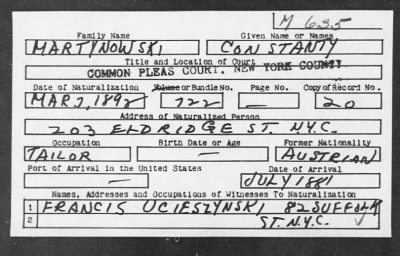 M 635
Family Name Given Name or Names
MARTYNOWSKI CONSTANTY
Title and Location of Court
COMMON PLEAS COURT, NEW YORK COUNTY
Date of Naturalization Volume or Bundle No. Page No. Copy of Record No.
MAR. 7, 1892 722 — 20
Address of Naturalized Person
203 ELDRIDGE ST. N.Y.C.
Occupation Birth Date or Age Former Nationality
TAILOR — AUSTRIAN
Port of Arrival in the United States Date of Arrival
— JULY 1881
Names, Addresses and Occupations of Witnesses To Naturalization
1 FRANCIS UCIESZYNSKI 82 SUFFOLK
2 ST. N.Y.C.